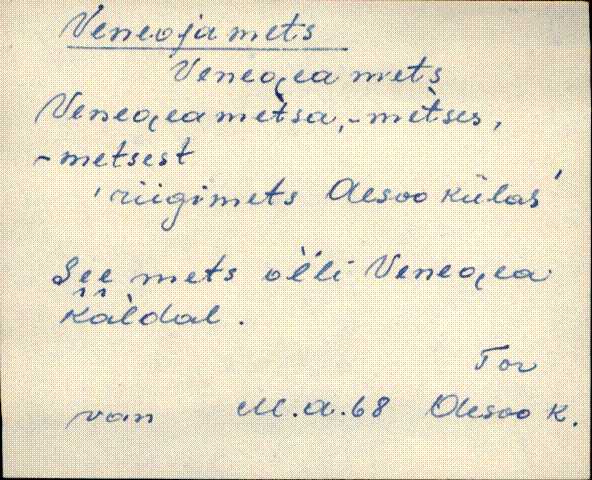 Veneoja mets
Veneọea mets
Veneọea mètsa, -mètses,
-metsest
'riigimets Oesoo külas'
See mets òlli Veneọea
käldal.
Tor
van M.a.68 Oesoo k.